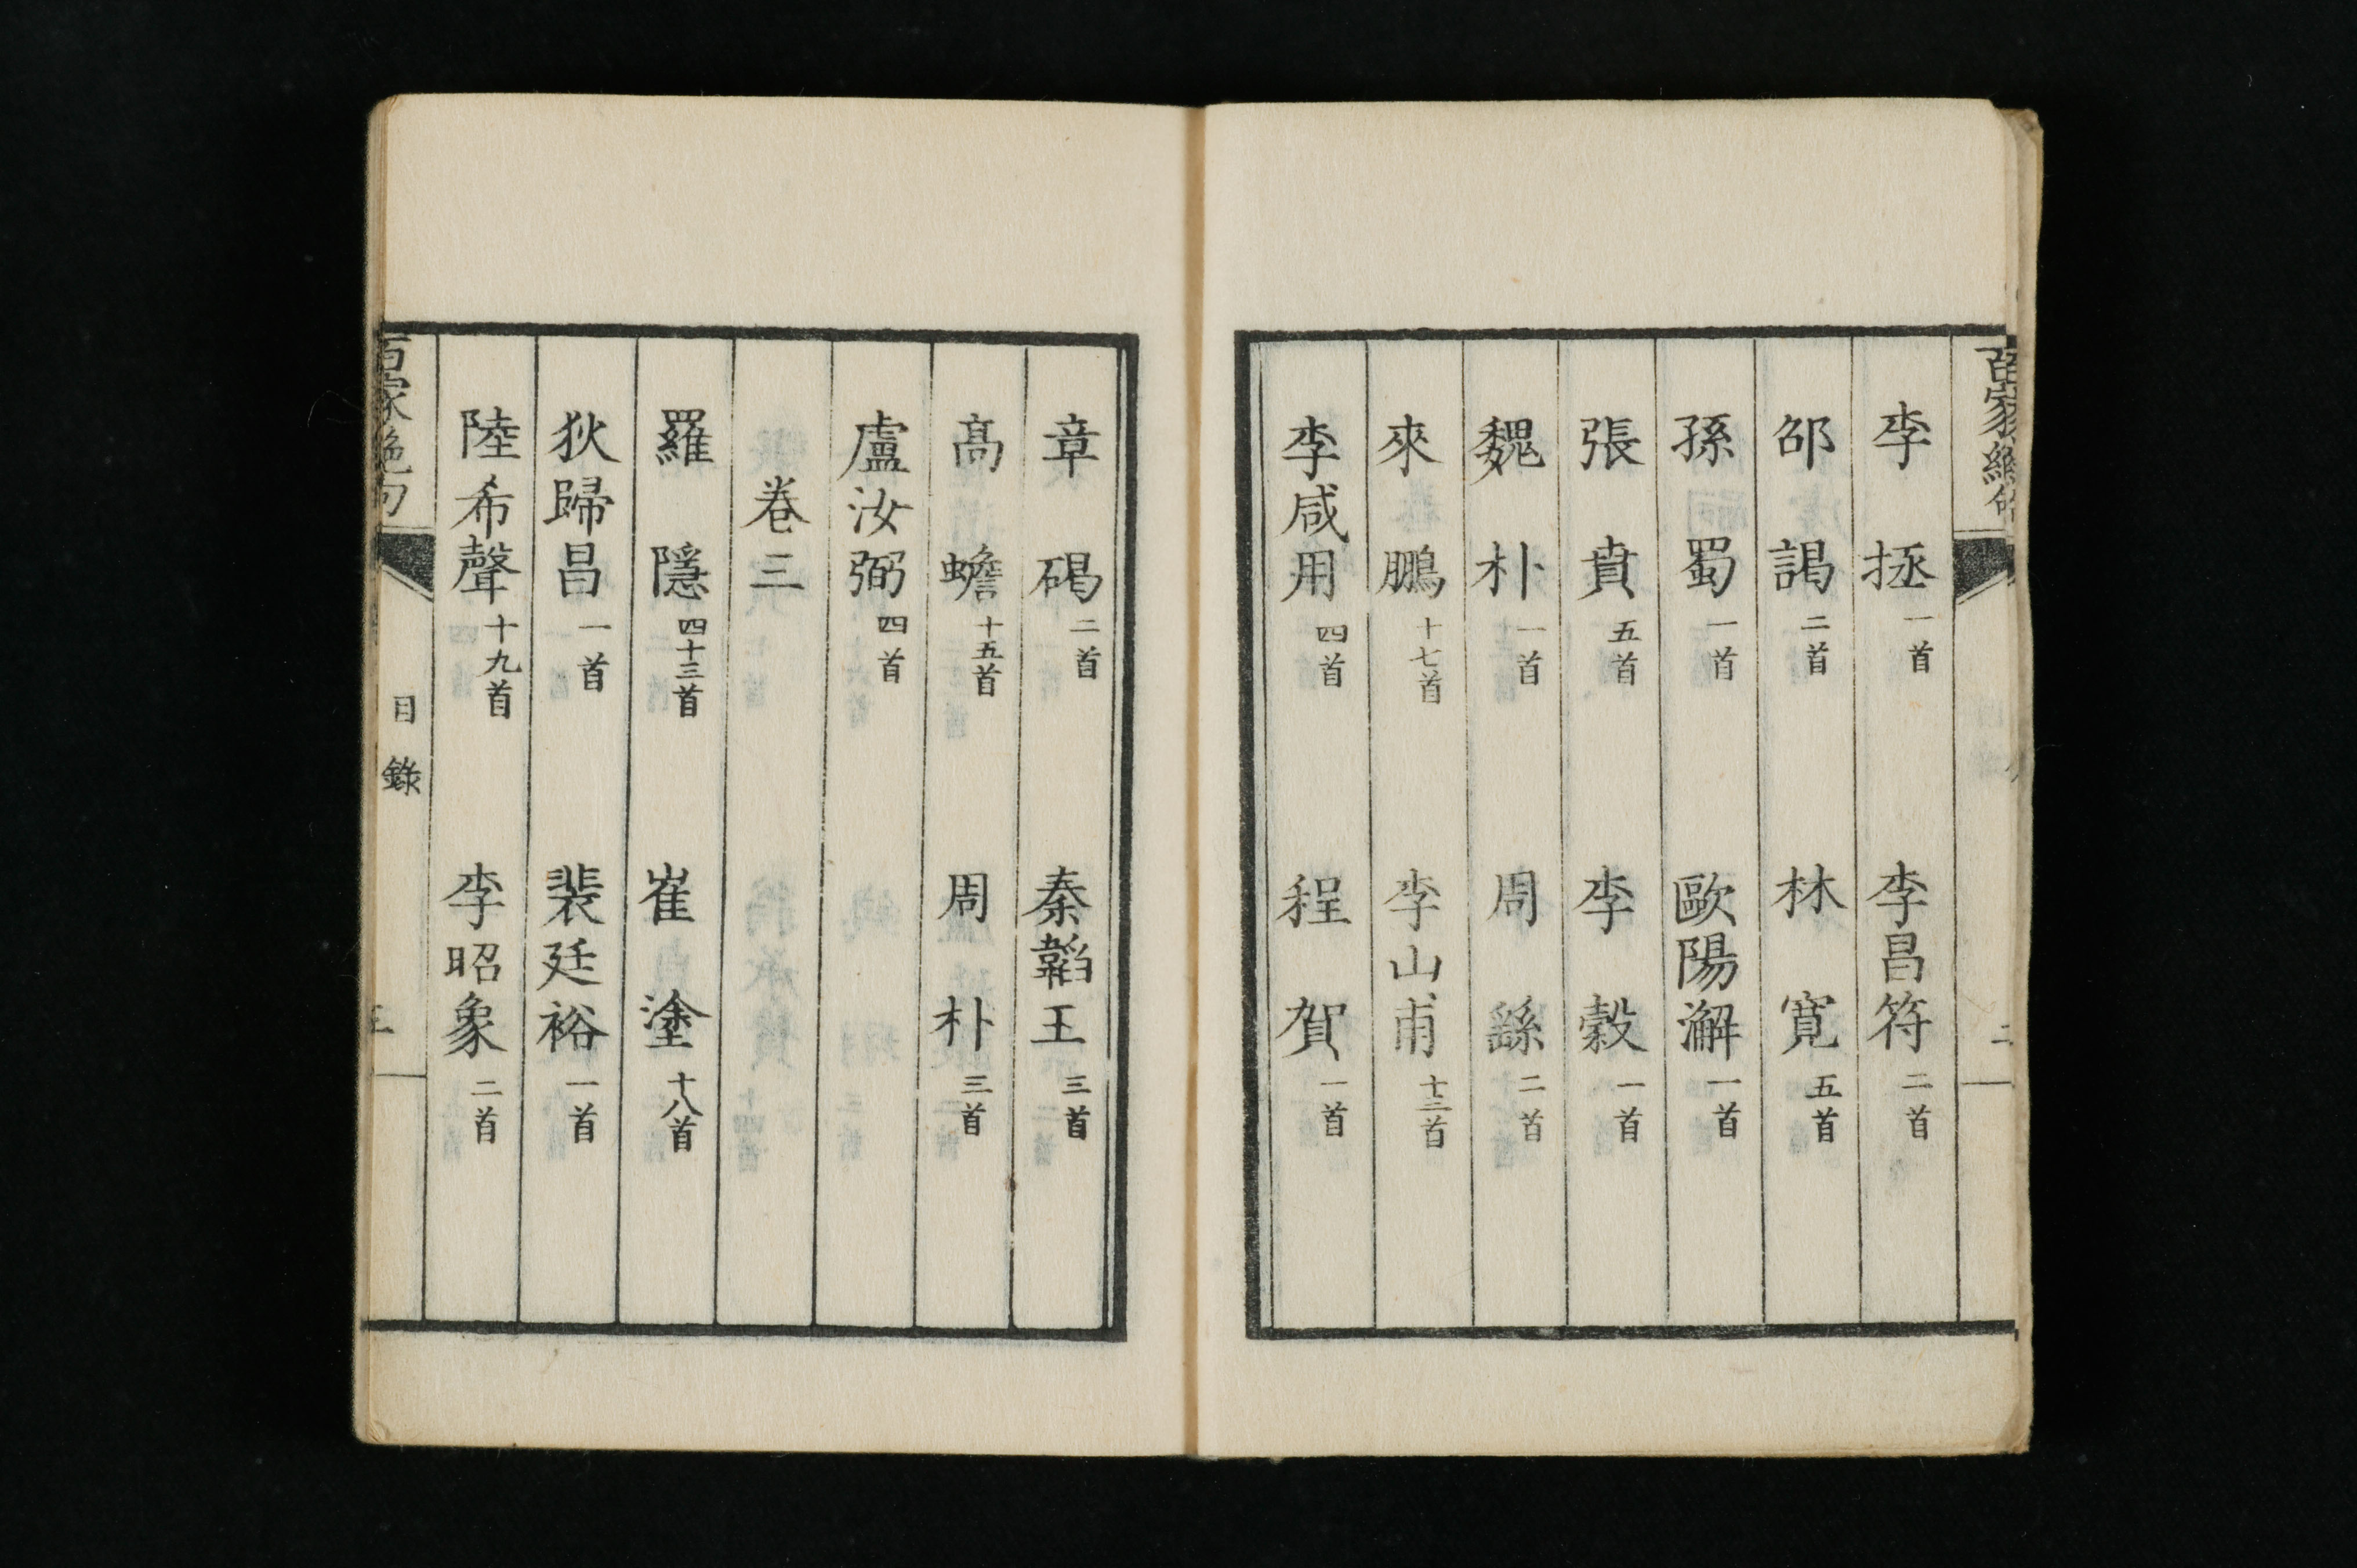 李拯一首 李昌符二首
邵謁二首 林寬五首
孫蜀一首 歐陽澥一首
張蕡五首 李縠一首
魏朴一首 周繇二首
來鵬十七首 李山甫十三首
李咸用四首 程賀一首
二
章碣二首 秦韜玉三首
高蟾十五首 周朴三首
盧汝弼四首
卷三
羅隱四十三首 崔塗十八首
狄歸昌一首 裴廷裕一首
陸希聲十九首 李昭象二首
百家絶句 目錄 三